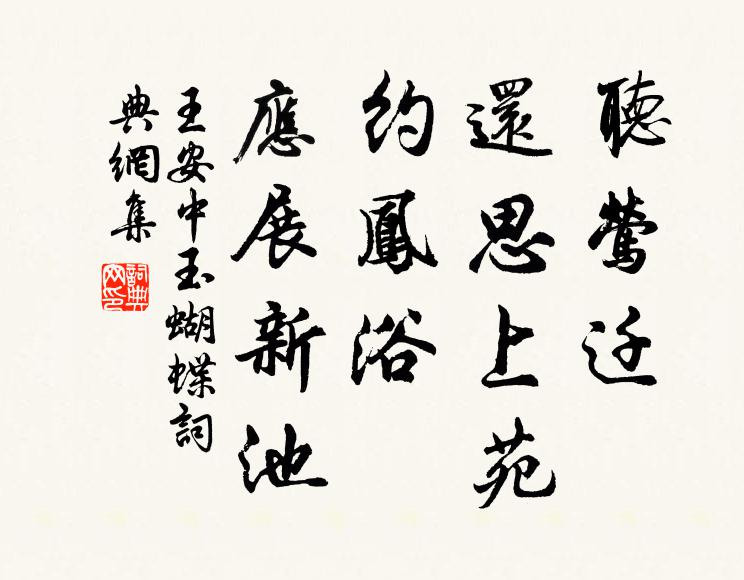 聽鶯迁
還思上苑
約鳳浴
應展新池
王安中玉蝴蝶詞
典網集
詞典网印